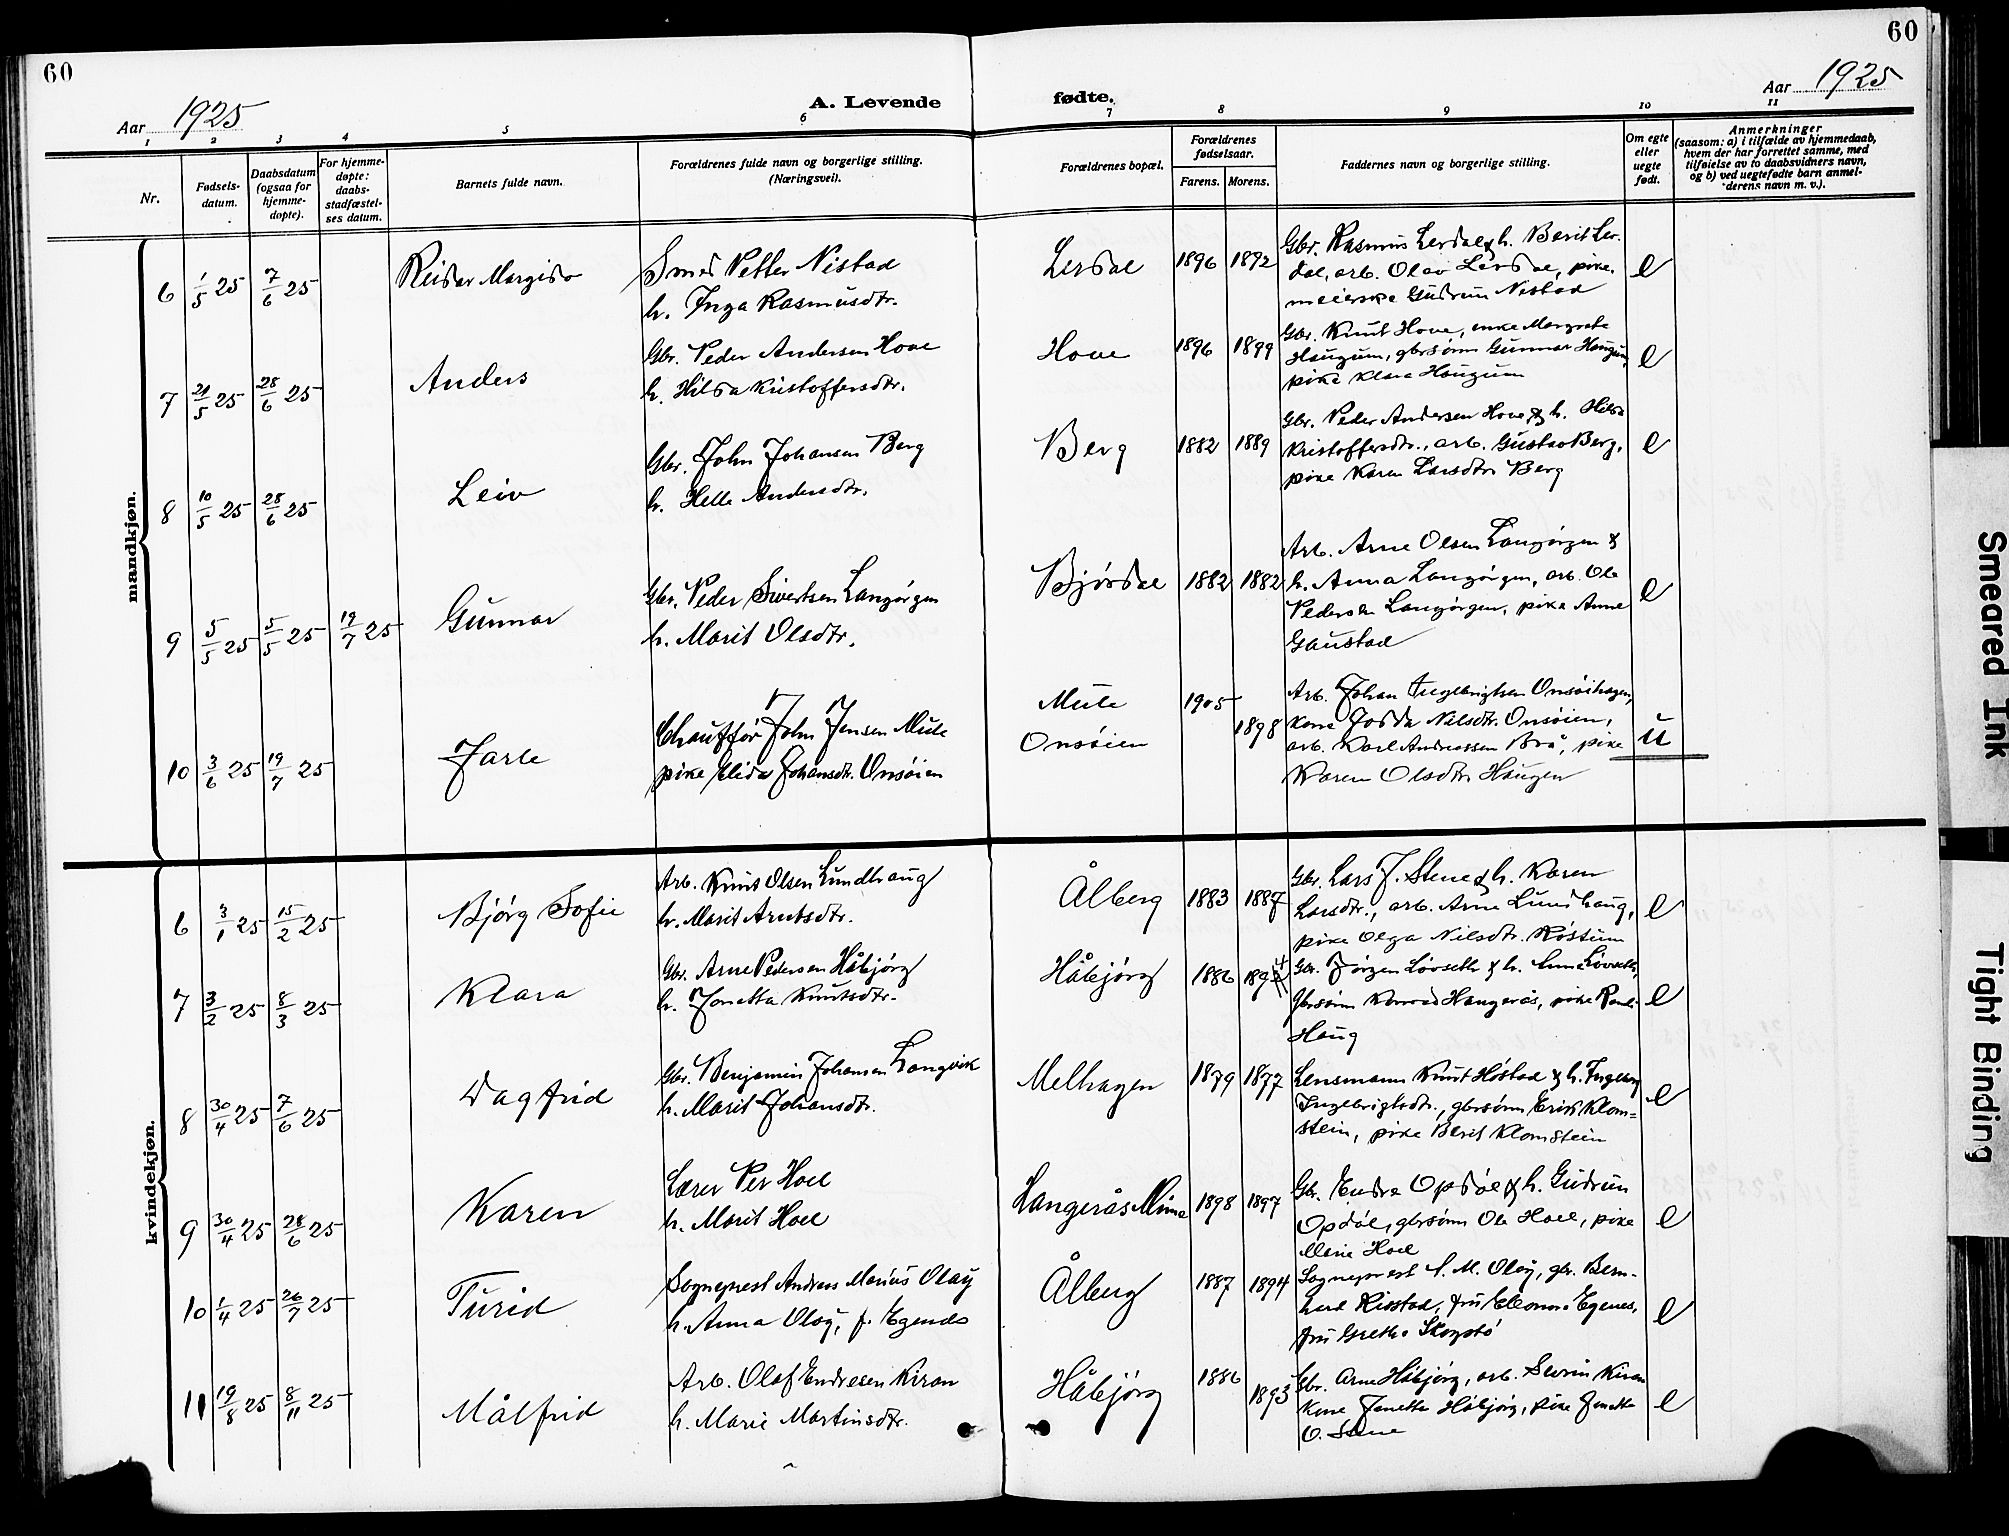 60
60
Aar 1925
A. Levende
fødte.
Aar 1925
1 2 3 4 5 6 7 8 9 10 11
Nr.
Fødsels-
datum.
Daabsdatum
(ogsaa for
hjemme-
døpte).
For hjemme-
døpte:
daabs-
stadfæstel-
ses datum.
Barnets fulde navn.
Forældrenes fulde navn og borgerlige stilling.
(Næringsvei).
Forældrenes bopæl.
Forældrenes
fødselsaar.
Farens. Morens.
Faddernes navn og borgerlige stilling.
Om egte
eller
uegte
født.
Anmerkninger
(saasom: a) i tilfælde av hjemmedaab,
hvem der har forrettet samme, med
tilføielse av to daabsvidners navn,
og b) ved uegtefødte barn anmel-
derens navn m. v.).
mandkjøn.
6 1/5 25 7/6 25 Reidar Margido
Smed Petter Nistad
h. Inga Rasmusdtr.
Lerdal 1896 1892
Gbr. Rasmus Lerdal & h. Berit Ler-
dal, arb. Olav Lerdal, pike,
meierske Gudrun Nistad
e
7 21/5 25 28/6 25 Anders
Gbr. Peder Andersen Hove
h. Hilda Kristoffersdtr.
Hove 1896 1899
Gbr. Knut Hove, enke Margrete
Haugum, gbrsønn Gunnar Haugum,
pike Klara Haugum
e
8 10/5 25 28/6 25 Leiv
Gbr. John Johansen Berg
h. Helle Andersdtr.
Berg 1882 1889
Gbr. Peder Andersen Hove & h. Hilda
Kristoffersdtr., arb. Gustav Berg,
pike Karen Larsdtr. Berg
e
9 5/5 25 5/5 25 19/7 25 Gunnar
Gbr. Peder Sivertsen Langørgen
h. Marit Olsdtr.
Bjørdal 1882 1882
Arb. Arne Olsen Langørgen &
h. Anna Langørgen, arb. Ole
Pedersen Langørgen, pike Anne
Gaustad
e
10 3/6 25 19/7 25 Jarle
Chauffør John Jensen Mule
pike Elida Johansdtr. Onsøien
Mule 1905
Onsøien 1898
Arb. Johan Ingebrigtsen Onsøihagen,
kone Jodda Nilsdtr. Onsøien,
arb. Karl Andreassen Brå, pike
Karen Olsdtr. Haugen
u
kvindekjøn.
6 3/1 25 15/2 25 Bjørg Sofie
Arb. Knut Olsen Lundhaug
h. Marit Arntsdtr.
Ålberg 1883 1887
Gbr. Lars J. Stene & h. Karen
Larsdtr., arb. Arne Lundhaug,
pike Olga Nilsdtr. Rossum
e
7 3/2 25 8/3 25 Klara
Gbr. Arne Pedersen Håbjørg
h. Jonetta Knutsdtr.
Håbjørg 1886
Gbr. Jørgen Løvseth & h. Anna Løvseth,
gbrsønn Konrad Haugerås, pike
Haug
e
8 30/4 25 7/6 25 Dagfrid
Gbr. Benjamin Johansen Langvik
h. Marit Johansdtr.
Melhagen 1879 1877
Lensmann Knut Høstad & h. Ingeborg
Ingebrigtsdtr., gbrsønn Erik Klom-
stein, pike Berit Klomstein
e
9 30/4 25 28/6 25 Karen
Lærer Per Hoel
h. Marit Hoel
Langerås Minne 1898 1897
Gbr. Endre Opdøl & h. Gudrun
Opdøl, gbrsønn Ole Hoel, pike
Marie Hoel
e
10 1/4 25 26/7 25 Turid
Sogneprest Andreas Marius Olay
h. Anna Olay, f. Egenes
Ålberg 1887 1894
Sogneprest A. M. Olay, gbr. Bern-
hard Risstad, fru Eleonora Egenes,
fru Grethe Skogstø
e
11 19/8 25 8/11 25 Målfrid
Arb. Olaf Endresen Kiran
h. Marie Martinsdtr.
Håbjørg 1886 1893
Gbr. Arne Håbjørg, arb. Severin Kiran
kone Jonetta Håbjørg, pike Jonette
O. Stene
e
Smeared Ink
Tight Binding